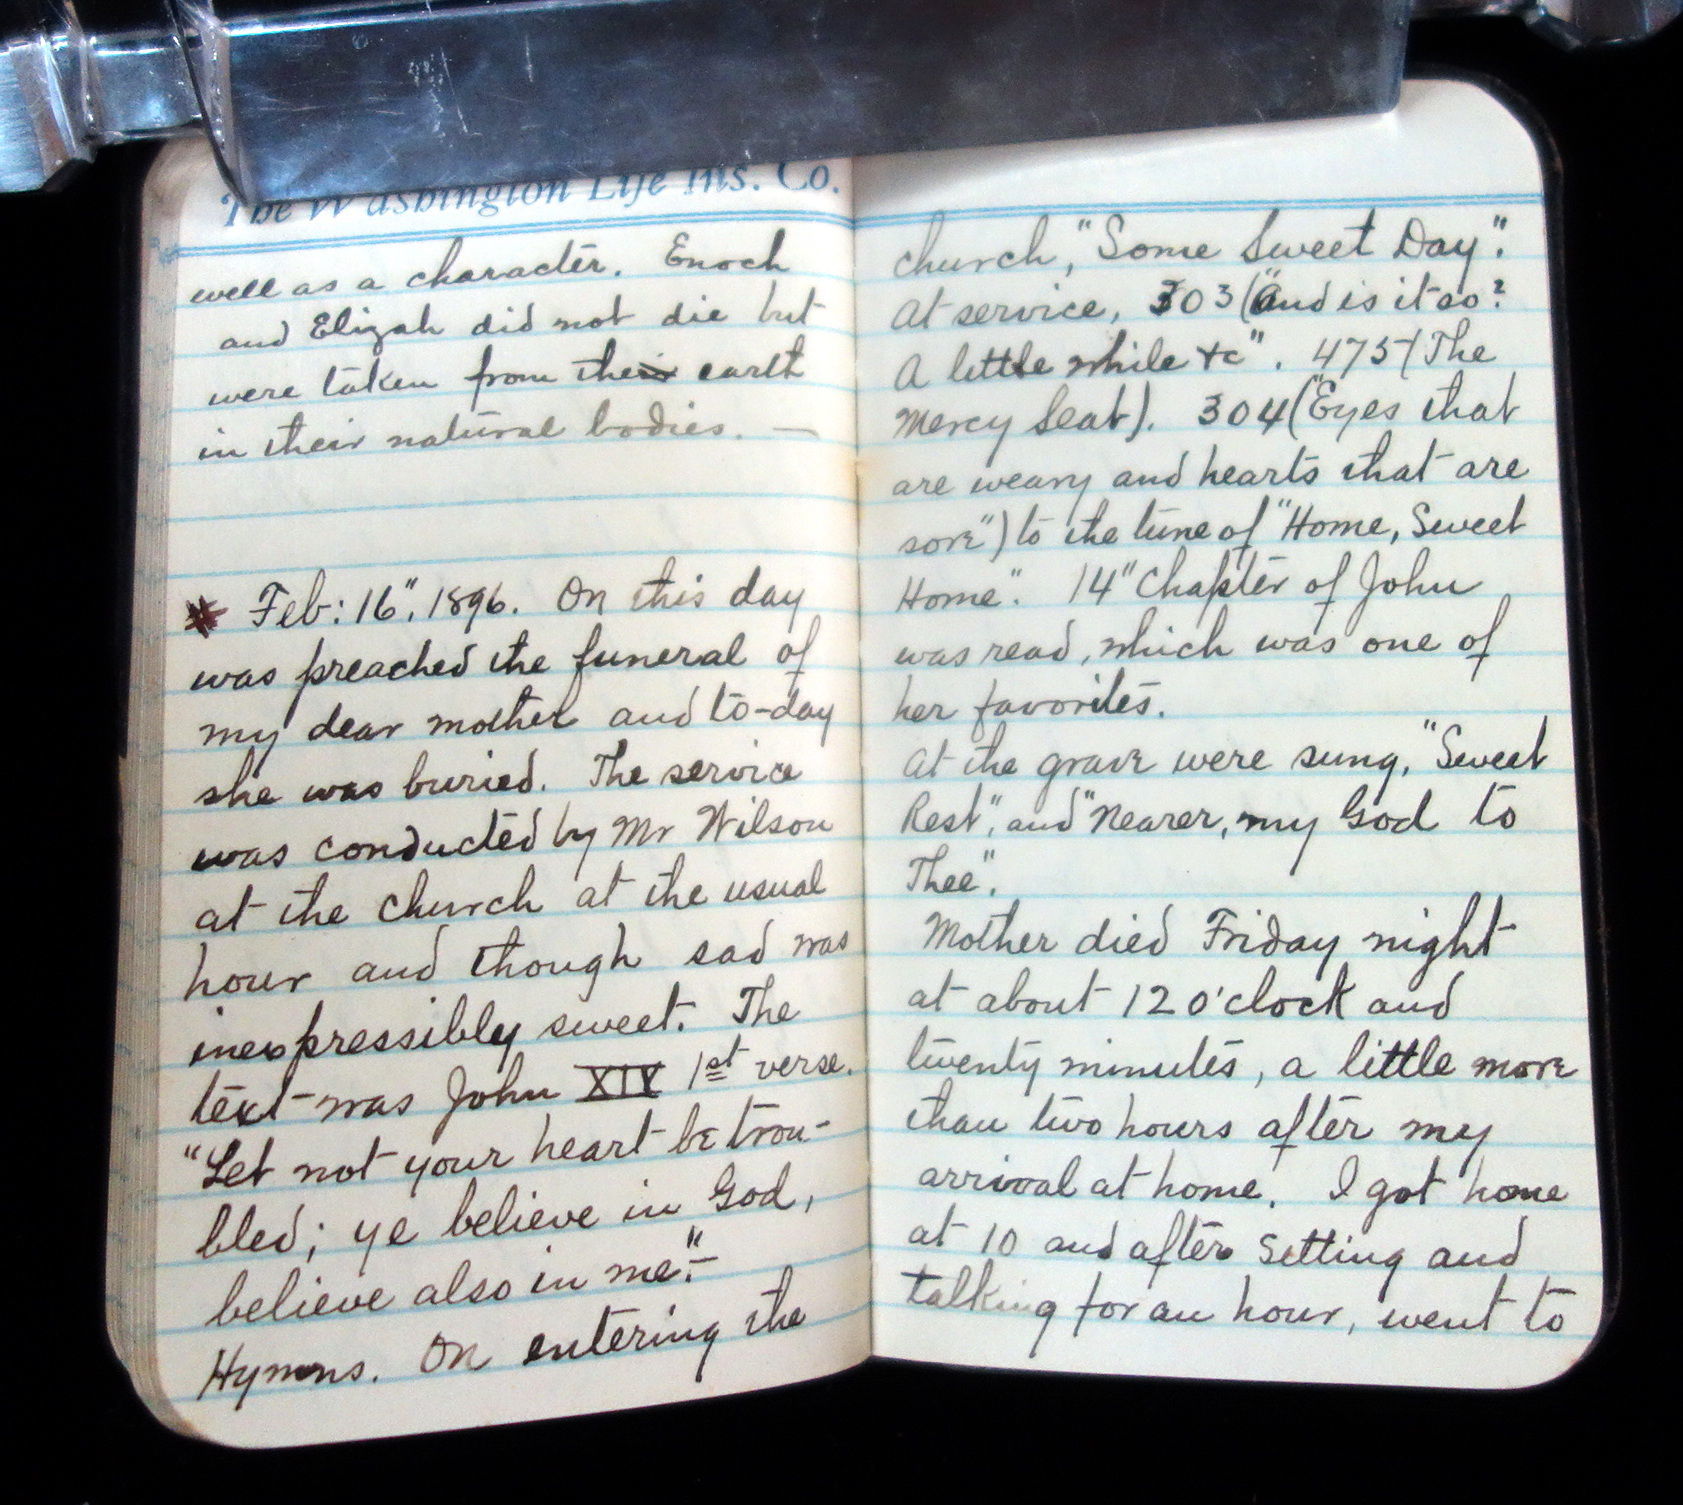 The Washington Life Ins. Co.
well as a character. Enoch
and Elijah did not die but
were taken from their earth
in their natural bodies. —
* Feb: 16", 1896. On this day
was preached the funeral of
my dear mother and to-day
she was buried. The service
was conducted by Mr Wilson
at the church at the usual
hour and though sad was
inexpressibly sweet. The
text was John XIV 1st verse.
"Let not your heart be trou-
bled; ye believe in God,
believe also in me."—
Hymns. On entering the
church, "Some Sweet Day".
At service, 303 ("And is it so?
A little while &c". 475 (The
Mercy Seat). 304 ("Eyes that
are weary and hearts that are
sore") to the tune of "Home, Sweet
Home". 14" Chapter of John
was read, which was one of
her favorites.
At the grave were sung, "Sweet
Rest", and "Nearer, my God to
Thee".
Mother died Friday night
at about 12 o'clock and
twenty minutes, a little more
than two hours after my
arrival at home. I got home
at 10 and after setting and
talking for an hour, went to